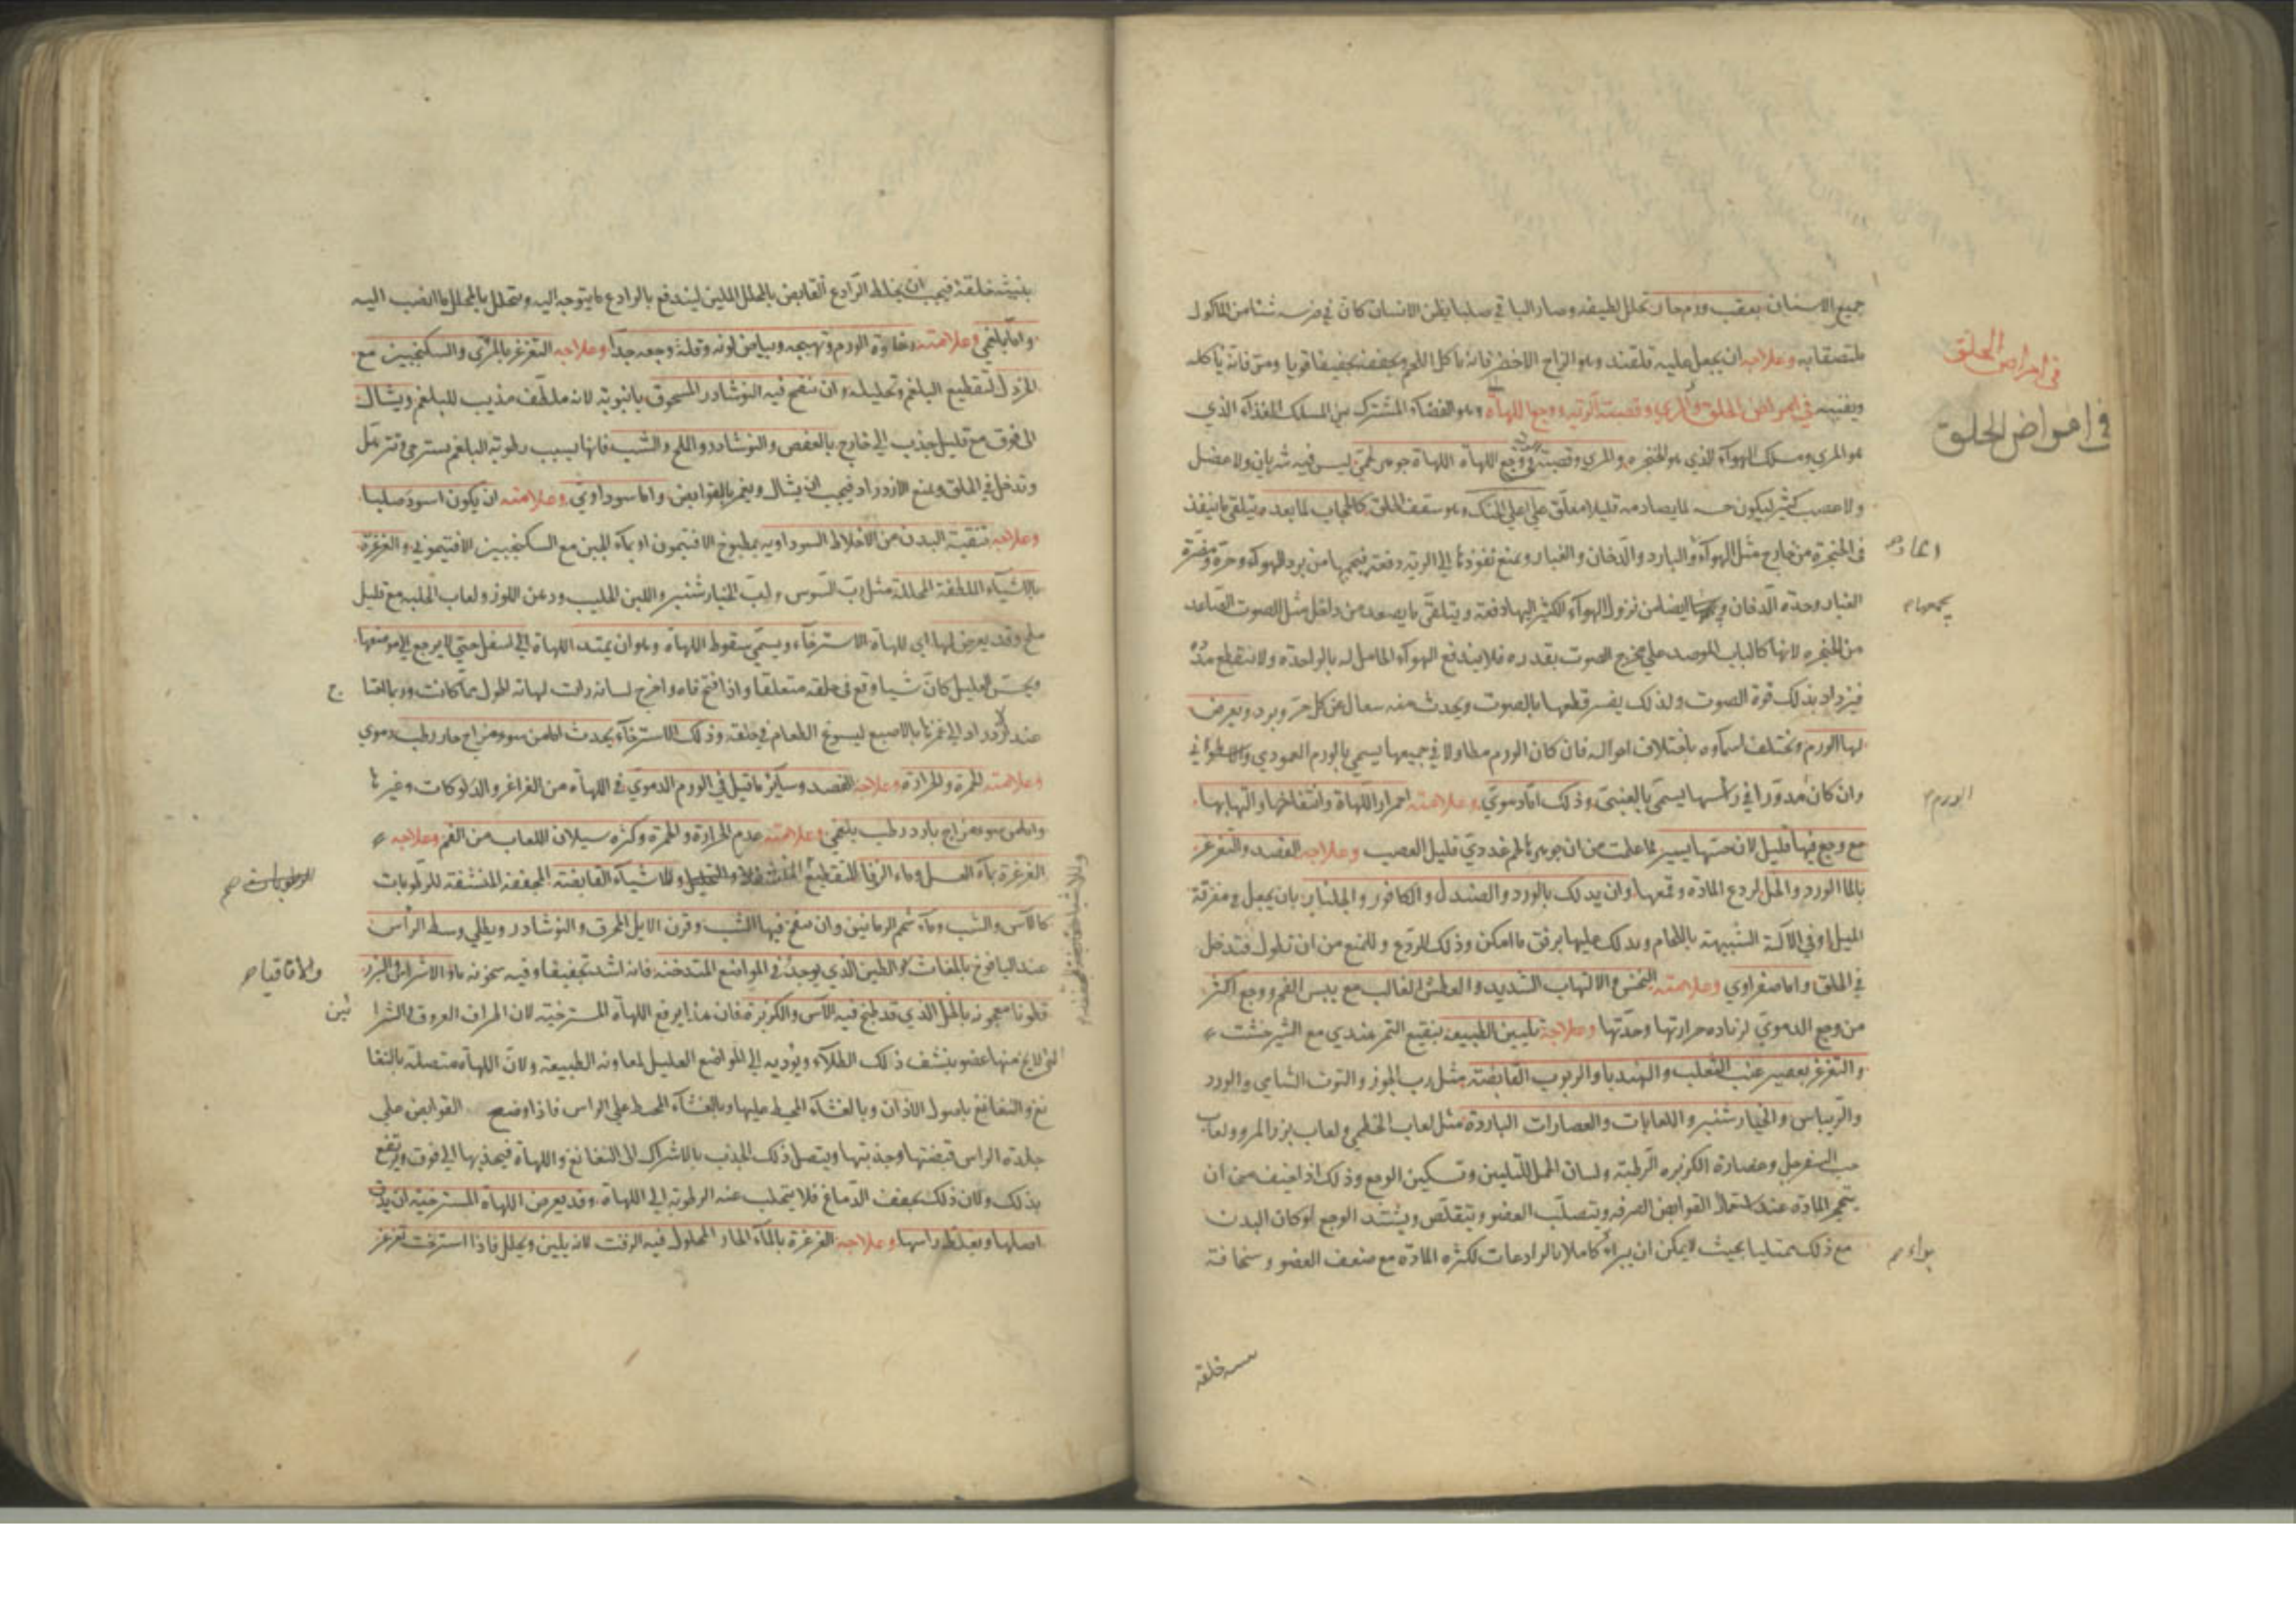 في امراض الحلق
في امراض الحلق
جميع الاسنان بعقب ورم حار تحلل لطيفه وصار الباقي صلبا يظن الانسان كان في ضرسه شئا من المأكول
ملتصقا به وعلاجه ان يجعل عليه قلقند وهو الزاج الاخضر فانه يأكل اللحم ويجففه تجفيفا قويا ومتى فانه يأكله
ويفنيه في امراض الحلق والمري وقصبة الرئة ووجع اللهاة وهو الفضاء المشترك بين المسلك الغذاء الذي
هو المري ومسلك الهواء الذي هو الحنجره والمري وقصبة ووجع اللهاة اللهاة جوهر لحمي ليس فيه شريان ولا عضل
ولا عصب كثير ليكون حسه لما يصادمه قليلا معلق على اعلى الحنك وهو سقف الحلق كالحجاب لما بعده يتلقى ما ينفذ
في الحنجرة من خارج مثل الهواء والبارد والدخان والغبار ويمنع نفوذها الي الرية دفعة فيحميها من برد الهواء وحره ومضرة
الغبار وحدة الدخان ايضا من نزول الهواء الكثير اليها دفعة ويتلقى ما يصعد من داخل مثل الصوت الصاعد
من الحنجره لانها كالباب الموصد على مخرج الصوت بقدره فلا يندفع الهواء الحامل له بالواحدة ولا ينقطع مده
فيزداد بذلك قوة الصوت ولذلك يضر قطعها بالصوت ويحدث منه سعال عن كل حر وبرد ويعرض
لها الورم وتختلف اسماوه باختلاف احواله فان كان الورم مطاولا في جميعها يسمى بالورم العمودي والاسطواني
وان كان مدورا في رأسها يسمى بالعنبي وذلك اما دموي وعلامته احمرار اللهاة وانتفاخها والتهابها
مع وجع فيها قليل لان حسها يسير لما علمت من ان جوهرها لحم غددي قليل العصب وعلاجه الفصد والتغرغر
بالما الورد والخل لردع المادة وقمعها وان يدلك بالورد والصندل والكافور والجلنار بان يجعل في مغرفة
الميل او في الآلة الشبيهة باللجام ويدلك عليها برفق ما امكن وذلك للردع وللمنع من ان تطول فتدخل
في الحلق واما صفراوي وعلامته النخس والالتهاب الشديد والعطش الغالب مع يبس الفم ووجع اكثر
من وجع الدموي لزياده حرارتها وحدتها وعلاجه تليين الطبيعه بنقيع التمر هندي مع الشيرخشت
والتغرغر بعصير عنب الثعلب والهندبا والربوب القابضة مثل رب الجوز والتوت الشامي والورد
والريباس والخيارشنبر واللعابات والعصارات الباردة مثل لعاب الخطمي ولعاب بزر المرو ولعاب
حب السفرجل وعصارة الكزبره الرطبة ولسان الحمل للتليين وتسكين الوجع وذلك اذا خيف من ان
يتحجر المادة عند استعمال القوابض الصرفه وتتصلب العضو ويتقلص ويشتد الوجع او كان البدن
مع ذلك ممتليا بحيث لا يمكن ان يبرأ كاملا بالرادعات لكثره المادة مع ضعف العضو وسخافة
الورم
خلقة
بنية خلقته فيجب ان يخلط الرادع القابض بالمحلل الملين ليندفع بالرادع ما يتوجه اليه ويتحلل بالمحلل ما انصب اليه
واما بلغمي وعلامته رخاوة الورم وتهيجه وبياض لونه وقلة وجعه جدا وعلاجه التغرغر بالمري والسكنجبين مع
الخردل لتقطيع البلغم وتحليله وان ينفخ فيه النوشادر المسحوق بانبوبة لانه ملطف مذيب للبلغم ويشال
الى فوق مع قليل جذب الي خارج بالعفص والنوشادر والملح والشب فانها بسبب رطوبة البلغم يسترخي وتترهل
وتدخل في الحلق ويمنع الازدراد فيجب ان يشال ويغمز بالقوابض واما سوداوي وعلامته ان يكون اسود صلبا
وعلاجه تنقية البدن من الاخلاط السوداويه بمطبوخ الافتيمون او بماء الجبن مع السكنجبين الافتيموني والغرغرة
بالاشياء اللطفة المحللة مثل رب السوس ولب الخيارشنبر واللبن الحليب ودهن اللوز ولعاب الحلبه مع قليل
ملح وقد يعرض لها اي للهاة الاسترخاء ويسمى سقوط اللهاة وهو ان يمتد اللهاة الى اسفل حتى لا يرجع الي موضعها
ويحس العليل كان شيا وقع في حلقه متعلقا واذا فتح فاه واخرج لسانه رات لهاته اطول مما كانت وربما احتا
ج
عند الازدراد الى غمزها بالاصبع ليسوغ الطعام في حلقه وذلك الاسترخاء يحدث اما من سوء مزاج حار رطب دموي
وعلامته الحمرة والحرارة وعلاجه الفصد وسائر ما قيل في الورم الدموي في اللهاة من الغراغر والدلوكات وغيرها
واما من سوء مزاج بارد رطب بلغمي وعلامته عدم الحرارة والحمرة وكثره سيلان اللعاب من الفم وعلاجه
الغرغرة بماء العسل وماء الزفا للتقطيع والتحليل والاشياء القابضة المجففة المنشفة للرطوبات
كالآس والشب وماء شحم الرمانين وان ينفخ فيها الشب وقرن الايل المحرق والنوشادر ويطلى وسط الراس
والاقاقيا صح
عند اليافوخ بالمغاث والطين الذي يوجد في المواضع المتدخنه فانه اشد تجفيفا وفيه سخونه
معجونه بالخل الذي قد طبخ فيه الآس والكزبرة فان هذا يرفع اللهاة المسترخية لان اطراف العروق والشرا
ئين
التي لا يخ منها عضو ينشف ذلك الطلاء ويؤديه الي المواضع العليل لمعاونه الطبيعة ولان اللهاة متصلة بالنغا
نغ والنغانغ باصول الاذان وبالغشاء المحيط عليها وبالغشاء المحيط على الراس فاذا وضع القوابض على
جلدة الراس قبضتها وجذبتها ويتصل ذلك الجذب بالاشراك الى النغانغ واللهاة فيجذبها الي فوق ويرتفع
بذلك ولان ذلك يجفف الدماغ فلا يتحلب عنه الرطوبة الي اللهاة وقد يعرض اللهاة المسترخية ان يدق
اصلها ويغلظ راسها وعلاجه الغرغرة بالماء الحار المحلول فيه الزفت لانه يلين ويحلل فاذا استرخت تغرغر